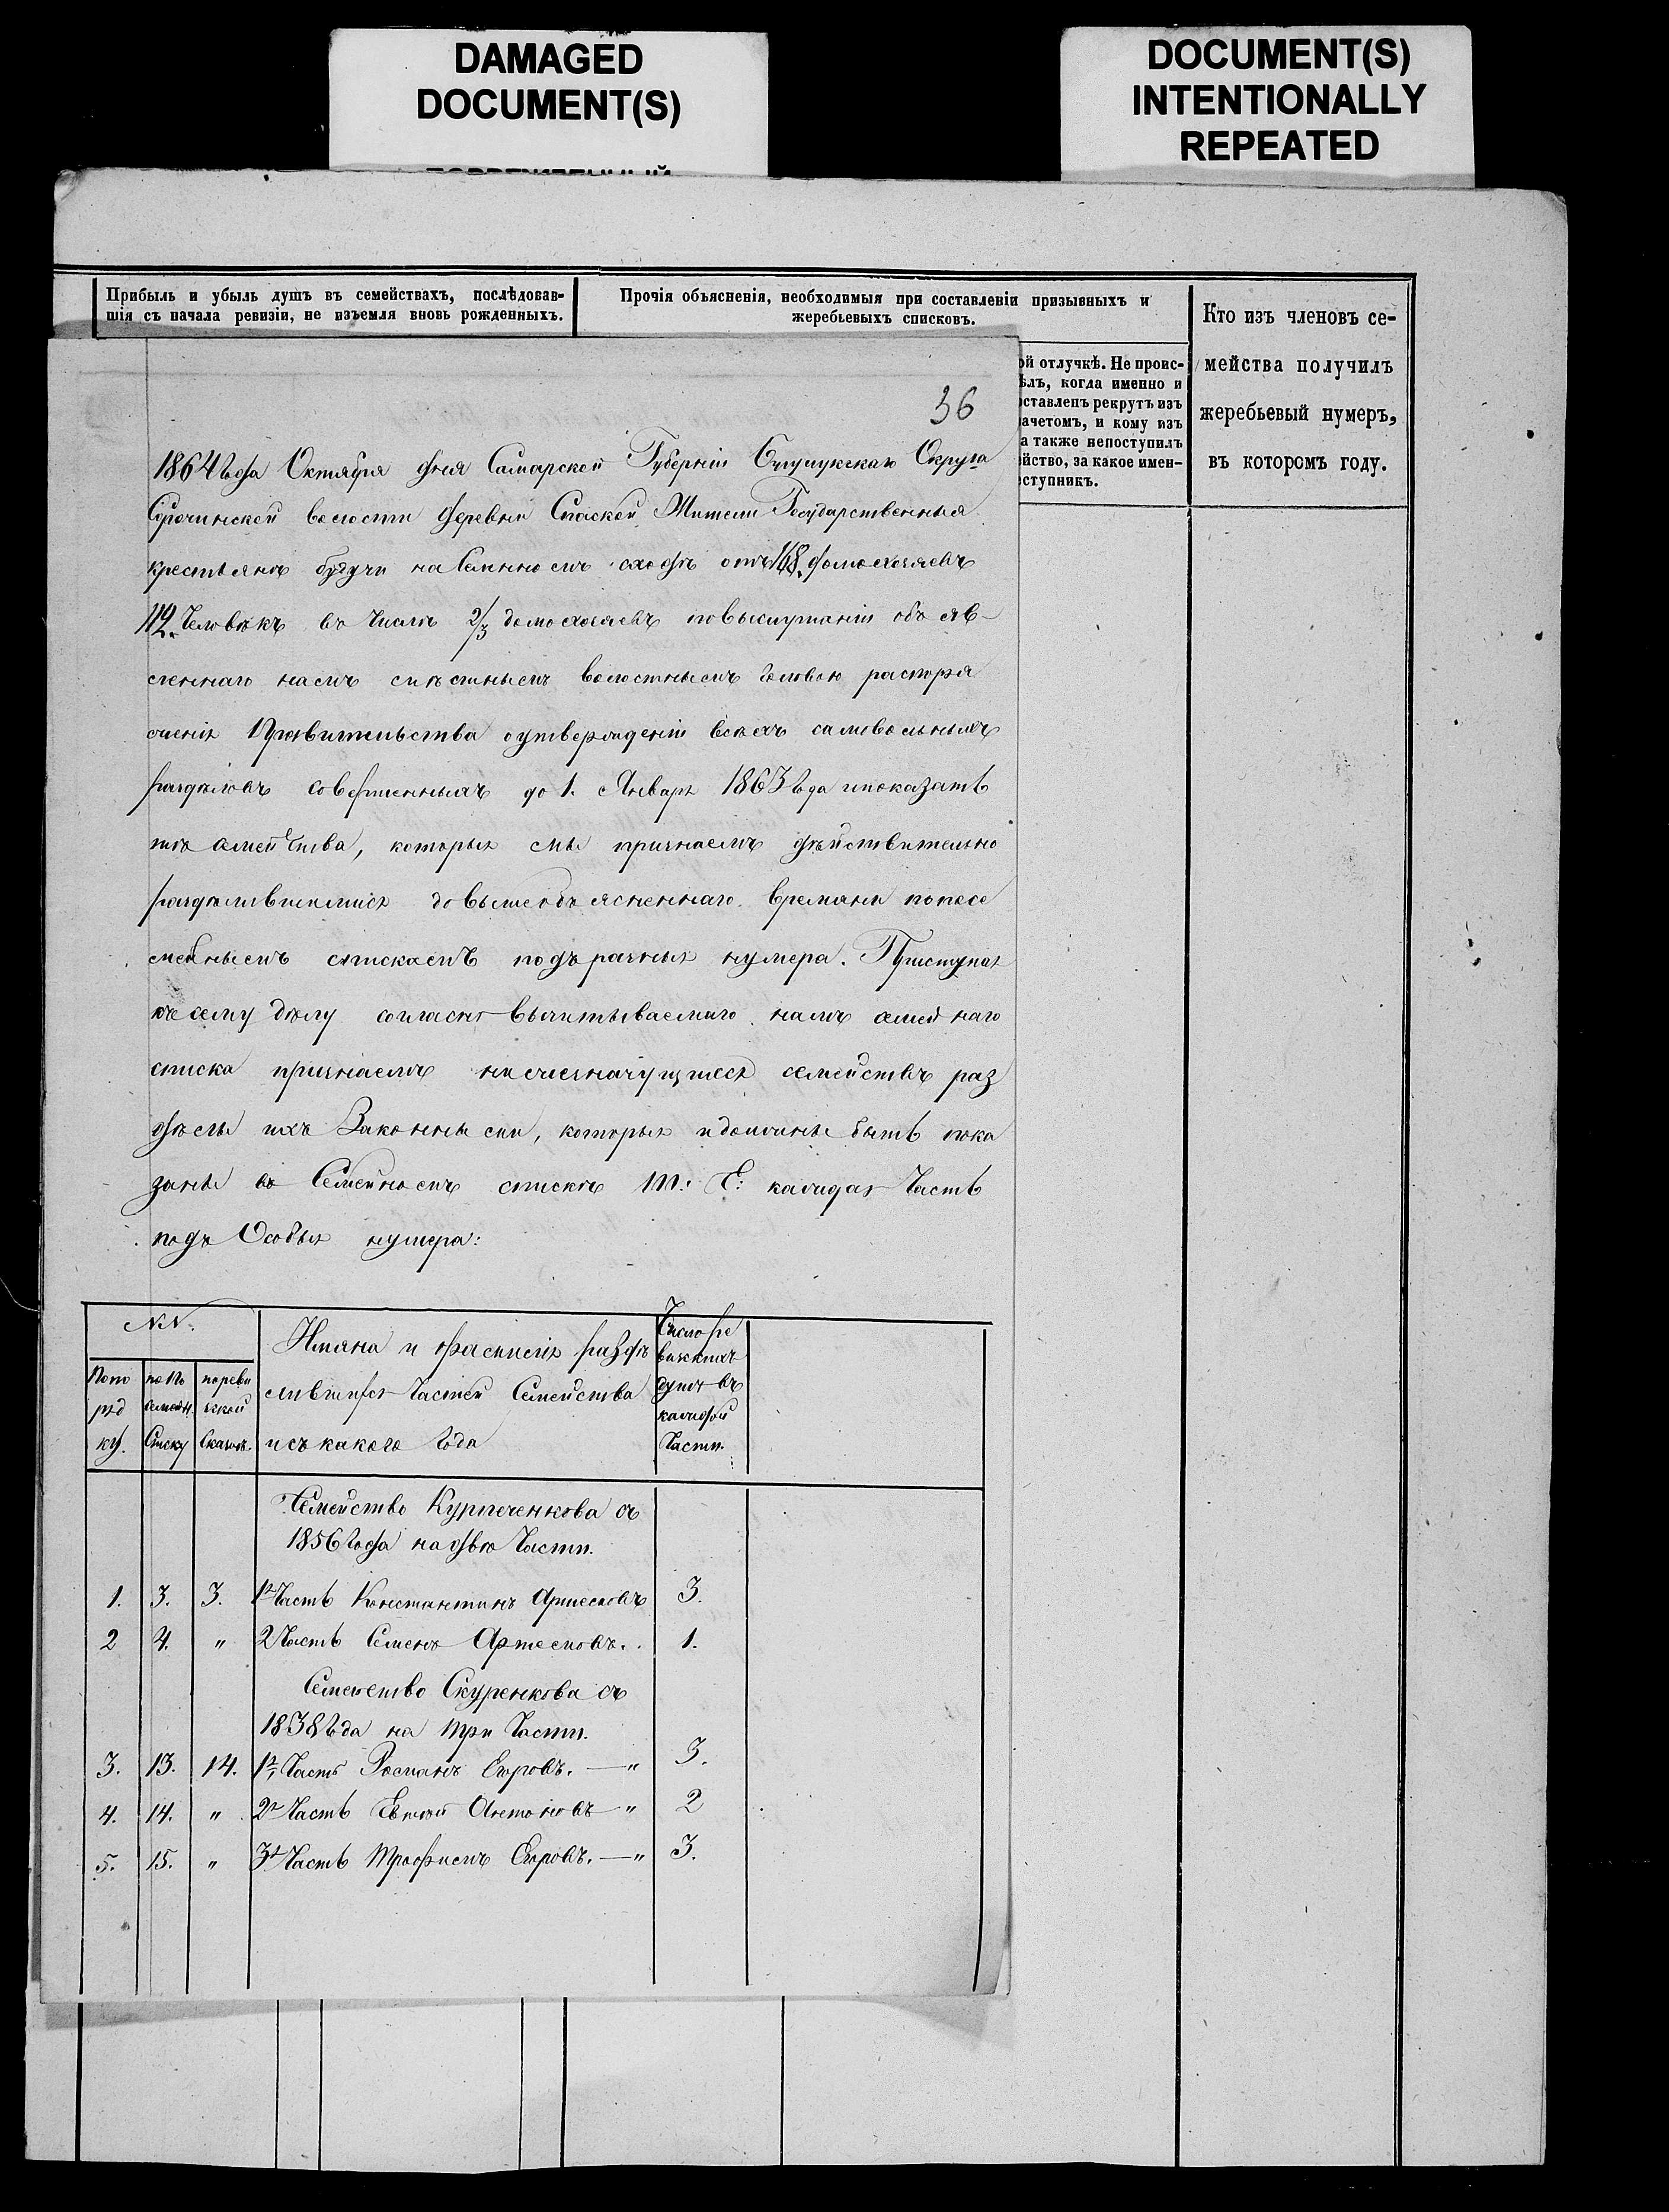 DAMAGED
DOCUMENT(S)
DOCUMENT(S)
INTENTIONALLY
REPEATED
Прибыль и убыль душъ въ семействахъ, послѣдовав-
шія съ начала ревизіи, не изъемля вновь рожденныхъ.
Прочія объясненія, необходимыя при составленіи призывныхъ и
жеребьевыхъ списковъ.
Кто изъ членовъ се-
мейства получилъ
жеребьевый нумеръ,
въ которомъ году.
ой отлучкѣ. Не проис-
ѣлъ, когда именно и
оставленъ рекрутъ изъ
ачетомъ, и кому изъ
а также непоступилъ
йство, за какое имен-
ступникъ.
36
1864 Года Октября дня Самарской Губерніи Округа
волости деревни Спаской Жители Государственныя
крестьянъ будучи на сходѣ отъ 168 домохозяевъ
112 Человѣкъ въ Числѣ 2/3 домохозяевъ повыслушаніи объяв-
леннаго намъ волостнымъ головою распоря
женія Правительства оутвержденіи всѣхъ самовольныхъ
раздѣловъ совершенныхъ до 1. Января 1863 Года ипоказать
тѣ семейства, которыя мы признаемъ дѣйствительно
довышеобъясненнаго времяни попосе
мейнымъ спискамъ подъ разныя нумера. Приступая
ксему дѣлу согласно вычитываемаго намъ семейнаго
списка признаемъ нижезначущиеся семействъ раз
дѣлы ихъ Законными, которыя идолжны быть пока
заны въ Семейномъ спискѣ т: Е: каждая Часть
подъ Особыя нумера:
№№.
По по
ряд
ку.
по
семейн.
Списку
пореви
зкой
Сказкѣ.
Имяна и раздѣ
лившихся Частей Семейства
исъ какого Года
Число ре
визкихъ
душъ въ
каждой
Части.
Семейство Курпеченкова съ
1856 Года на двѣ Части.
1. 3. 3. 1я Часть Константинъ Артемовъ 3.
2 4. " 2 Часть Семенъ Артемовъ. 1.
Семейство Скуренкова съ
1838 Года на три Части.
3. 13. 14. 1я Часть Романъ Егоровъ. — " 3.
4. 14. " 2я Часть Антоновъ — " 2
5. 15. " 3я Часть Трофимъ Егоровъ. — " 3.